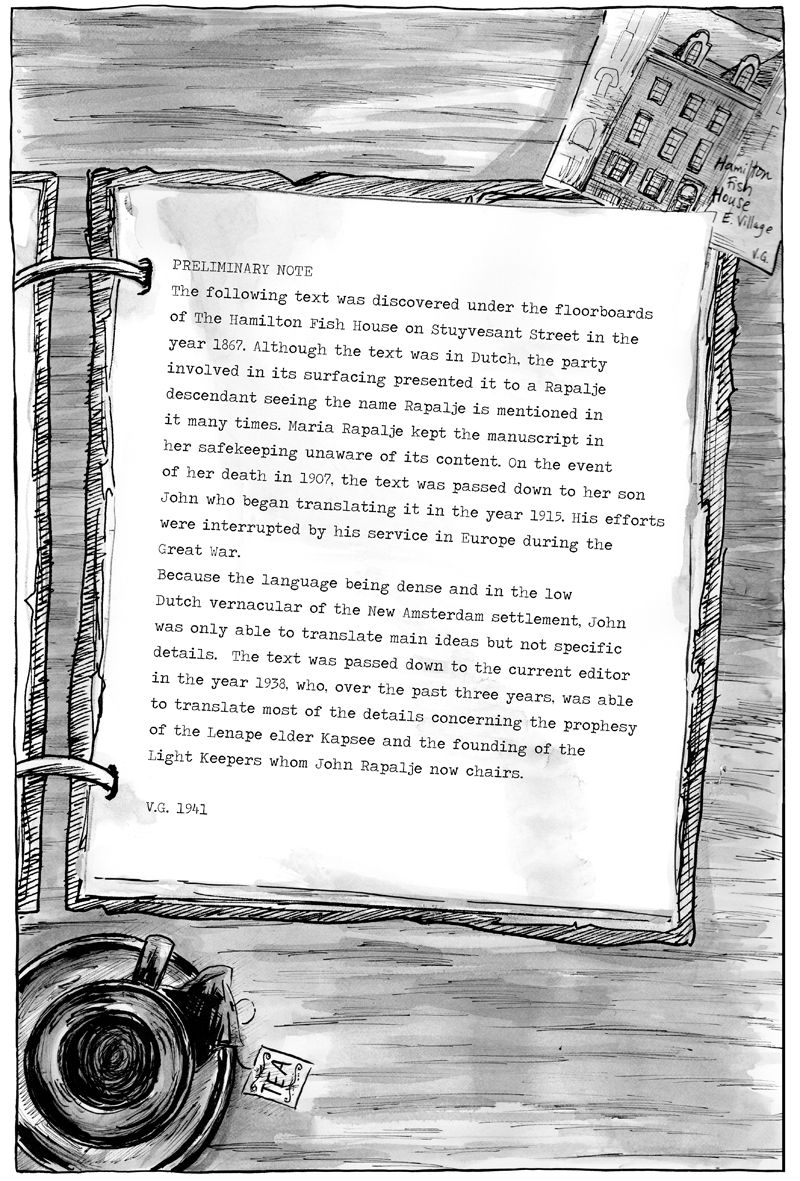 Hamilton
Fish
House
E. Village
V.G.
PRELIMINARY NOTE
The following text was discovered under the floorboards
of The Hamilton Fish House on Stuyvesant Street in the
year 1867. Although the text was in Dutch, the party
involved in its surfacing presented it to a Rapalje
descendant seeing the name Rapalje is mentioned in
it many times. Maria Rapalje kept the manuscript in
her safekeeping unaware of its content. On the event
of her death in 1907, the text was passed down to her son
John who began translating it in the year 1915. His efforts
were interrupted by his service in Europe during the
Great War.
Because the language being dense and in the low
Dutch vernacular of the New Amsterdam settlement, John
was only able to translate main ideas but not specific
details. The text was passed down to the current editor
in the year 1938, who, over the past three years, was able
to translate most of the details concerning the prophesy
of the Lenape elder Kapsee and the founding of the
Light Keepers whom John Rapalje now chairs.
V.G. 1941
TEA